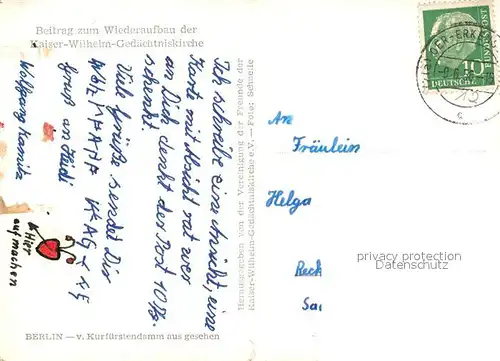 Beitrag zum Wiederaufbau der
Kaiser-Wilhelm-Gedächtniskirche
Ich schreibe eine Ansicht, eine
Karte mit Absicht rat wer
an Dich denkt der Post 10 Pf.
schenkt.
Viele Grüße sendet Dir
Gruß an Heidi
Wolfgang
Hier
aufmachen
BERLIN — v. Kurfürstendamm aus gesehen
Herausgegeben von der Vereinigung der Freunde der
Kaiser-Wilhelm-Gedächtniskirche e.V. — Foto: Schnelle
An
Fräulein
Helga
Rech
Sa
DEUTSCHE
BUNDESPOST
10
privacy protection
Datenschutz